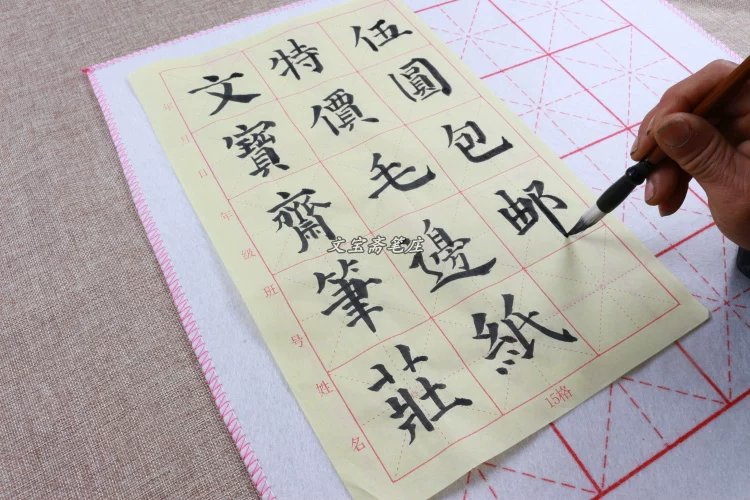 文寶齋筆莊
特價毛邊紙
伍圓包邮
年月日年级班号姓名
15格
文宝斋笔庄